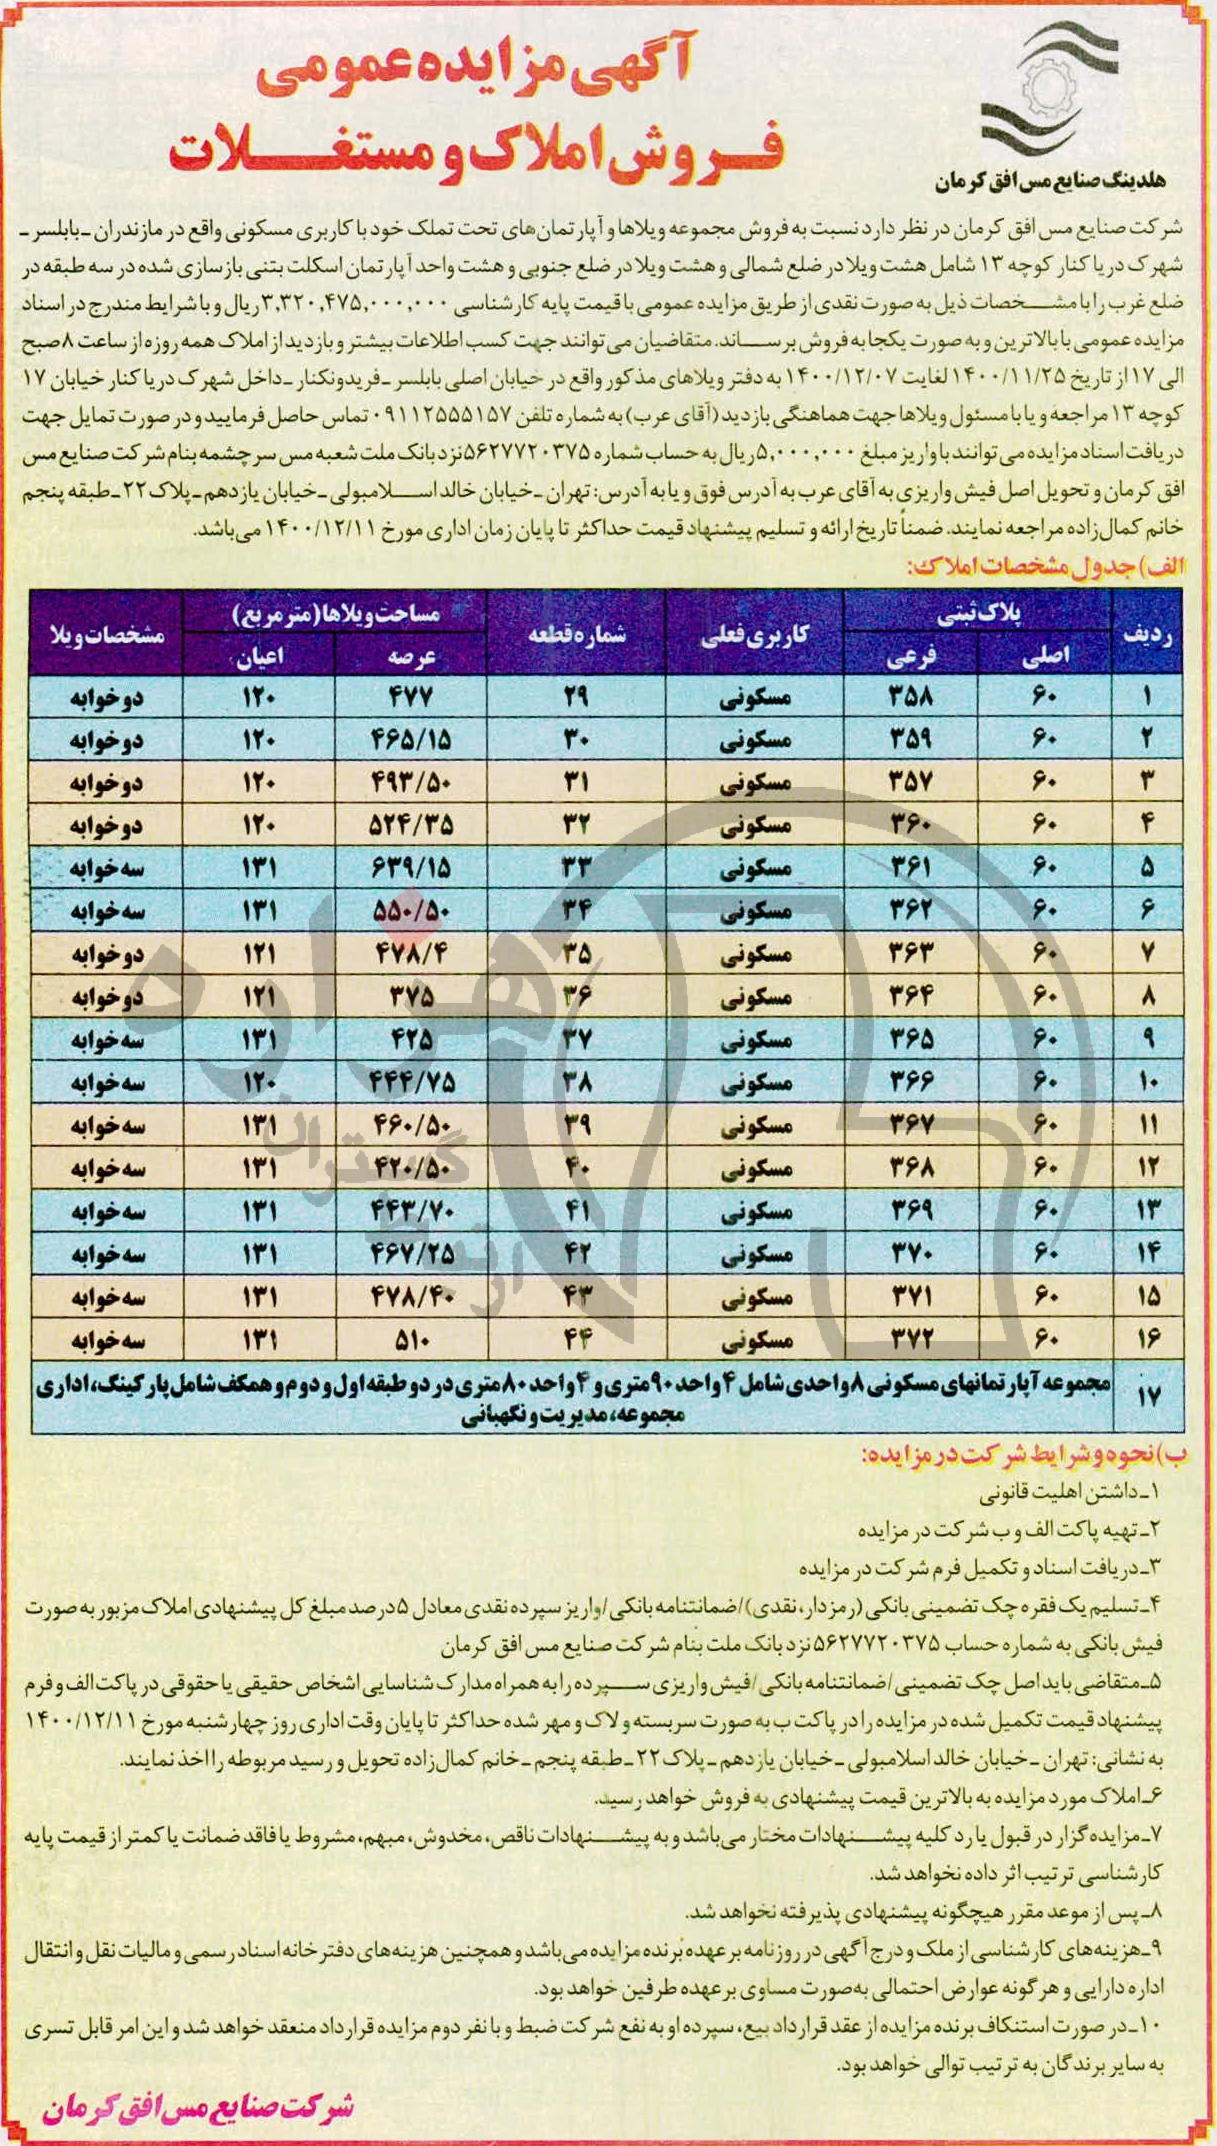 آگهی مزایده عمومی
فروش املاک و مستغلات
هلدینگ صنایع مس افق کرمان
شرکت صنایع مس افق کرمان در نظر دارد نسبت به فروش مجموعه ویلاها و آپارتمان‌های تحت تملک خود با کاربری مسکونی واقع در مازندران ـ بابلسر ـ
شهرک دریاکنار کوچه ۱۳ شامل هشت ویلا در ضلع شمالی و هشت ویلا در ضلع جنوبی و هشت واحد آپارتمان اسکلت بتنی بازسازی شده در سه طبقه در
ضلع غرب را با مشخصات ذیل به صورت نقدی از طریق مزایده عمومی با قیمت پایه کارشناسی ۳,۳۲۰,۴۷۵,۰۰۰,۰۰۰ ریال و با شرایط مندرج در اسناد
مزایده عمومی با بالاترین و به صورت یکجا به فروش برساند. متقاضیان می‌توانند جهت کسب اطلاعات بیشتر و بازدید از املاک همه روزه از ساعت ۸ صبح
الی ۱۷ از تاریخ ۱۴۰۰/۱۱/۲۵ لغایت ۱۴۰۰/۱۲/۰۷ به دفتر ویلاهای مذکور واقع در خیابان اصلی بابلسر ـ فریدونکنار ـ داخل شهرک دریاکنار خیابان ۱۷
کوچه ۱۳ مراجعه و یا با مسئول ویلاها جهت هماهنگی بازدید (آقای عرب) به شماره تلفن ۰۹۱۱۲۵۵۵۱۵۷ تماس حاصل فرمایید و در صورت تمایل جهت
دریافت اسناد مزایده می‌توانند با واریز مبلغ ۵,۰۰۰,۰۰۰ ریال به حساب شماره ۵۶۲۷۷۲۰۳۷۵ نزد بانک ملت شعبه مس سرچشمه بنام شرکت صنایع مس
افق کرمان و تحویل اصل فیش واریزی به آقای عرب به آدرس فوق و یا به آدرس: تهران ـ خیابان خالد اسلامبولی ـ خیابان یازدهم ـ پلاک ۲۲ ـ طبقه پنجم
خانم کمال‌زاده مراجعه نمایند. ضمناً تاریخ ارائه و تسلیم پیشنهاد قیمت حداکثر تا پایان زمان اداری مورخ ۱۴۰۰/۱۲/۱۱ می‌باشد.
الف) جدول مشخصات املاک:
ردیف پلاک ثبتی کاربری فعلی شماره قطعه مساحت ویلاها (متر مربع) مشخصات ویلا
اصلی فرعی عرصه اعیان
۱ ۶۰ ۳۵۸ مسکونی ۲۹ ۴۷۷ ۱۲۰ دو خوابه
۲ ۶۰ ۳۵۹ مسکونی ۳۰ ۴۶۵/۱۵ ۱۲۰ دو خوابه
۳ ۶۰ ۳۵۷ مسکونی ۳۱ ۴۹۳/۵۰ ۱۲۰ دو خوابه
۴ ۶۰ ۳۶۰ مسکونی ۳۲ ۵۲۴/۳۵ ۱۲۰ دو خوابه
۵ ۶۰ ۳۶۱ مسکونی ۳۳ ۶۳۹/۱۵ ۱۳۱ سه خوابه
۶ ۶۰ ۳۶۲ مسکونی ۳۴ ۵۵۰/۵۰ ۱۳۱ سه خوابه
۷ ۶۰ ۳۶۳ مسکونی ۳۵ ۴۷۸/۴ ۱۲۱ دو خوابه
۸ ۶۰ ۳۶۴ مسکونی ۳۶ ۳۷۵ ۱۲۱ دو خوابه
۹ ۶۰ ۳۶۵ مسکونی ۳۷ ۴۲۵ ۱۳۱ سه خوابه
۱۰ ۶۰ ۳۶۶ مسکونی ۳۸ ۴۴۴/۷۵ ۱۲۰ سه خوابه
۱۱ ۶۰ ۳۶۷ مسکونی ۳۹ ۴۶۰/۵۰ ۱۳۱ سه خوابه
۱۲ ۶۰ ۳۶۸ مسکونی ۴۰ ۴۲۰/۵۰ ۱۳۱ سه خوابه
۱۳ ۶۰ ۳۶۹ مسکونی ۴۱ ۴۴۳/۷۰ ۱۳۱ سه خوابه
۱۴ ۶۰ ۳۷۰ مسکونی ۴۲ ۴۶۷/۲۵ ۱۳۱ سه خوابه
۱۵ ۶۰ ۳۷۱ مسکونی ۴۳ ۴۷۸/۴۰ ۱۳۱ سه خوابه
۱۶ ۶۰ ۳۷۲ مسکونی ۴۴ ۵۱۰ ۱۳۱ سه خوابه
۱۷ مجموعه آپارتمانهای مسکونی ۸ واحدی شامل ۴ واحد ۹۰ متری و ۴ واحد ۸۰ متری در دو طبقه اول و دوم و همکف شامل پارکینگ، اداری
مجموعه، مدیریت و نگهبانی
ب) نحوه و شرایط شرکت در مزایده:
۱ـ داشتن اهلیت قانونی
۲ـ تهیه پاکت الف و ب شرکت در مزایده
۳ـ دریافت اسناد و تکمیل فرم شرکت در مزایده
۴ـ تسلیم یک فقره چک تضمینی بانکی (رمزدار، نقدی)/ضمانتنامه بانکی/واریز سپرده نقدی معادل ۵ درصد مبلغ کل پیشنهادی املاک مزبور به صورت
فیش بانکی به شماره حساب ۵۶۲۷۷۲۰۳۷۵ نزد بانک ملت بنام شرکت صنایع مس افق کرمان
۵ـ متقاضی باید اصل چک تضمینی/ضمانتنامه بانکی/فیش واریزی سپرده را به همراه مدارک شناسایی اشخاص حقیقی یا حقوقی در پاکت الف و فرم
پیشنهاد قیمت تکمیل شده در مزایده را در پاکت ب به صورت سربسته و لاک و مهر شده حداکثر تا پایان وقت اداری روز چهارشنبه مورخ ۱۴۰۰/۱۲/۱۱
به نشانی: تهران ـ خیابان خالد اسلامبولی ـ خیابان یازدهم ـ پلاک ۲۲ ـ طبقه پنجم ـ خانم کمال‌زاده تحویل و رسید مربوطه را اخذ نمایند.
۶ـ املاک مورد مزایده به بالاترین قیمت پیشنهادی به فروش خواهد رسید.
۷ـ مزایده‌گزار در قبول یا رد کلیه پیشنهادات مختار می‌باشد و به پیشنهادات ناقص، مخدوش، مبهم، مشروط یا فاقد ضمانت یا کمتر از قیمت پایه
کارشناسی ترتیب اثر داده نخواهد شد.
۸ـ پس از موعد مقرر هیچگونه پیشنهادی پذیرفته نخواهد شد.
۹ـ هزینه‌های کارشناسی از ملک و درج آگهی در روزنامه بر عهده برنده مزایده می‌باشد و همچنین هزینه‌های دفترخانه اسناد رسمی و مالیات نقل و انتقال
اداره دارایی و هرگونه عوارض احتمالی به‌صورت مساوی برعهده طرفین خواهد بود.
۱۰ـ در صورت استنکاف برنده مزایده از عقد قرارداد بیع، سپرده او به نفع شرکت ضبط و با نفر دوم مزایده قرارداد منعقد خواهد شد و این امر قابل تسری
به سایر برندگان به ترتیب توالی خواهد بود.
شرکت صنایع مس افق کرمان